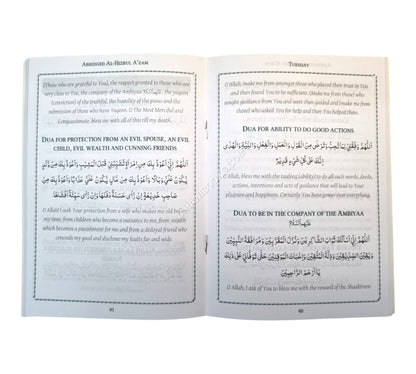 TUESDAY
O Allah, make me from amongst those who placed their trust in You
and then found You to be sufficient, (make me from) those who
sought guidance from You and were then guided and (make me from)
those who asked You for help and then You helped them.
DUA FOR ABILITY TO DO GOOD ACTIONS
اَللّٰهُمَّ وَفِّقْنِيْ لِمَا تُحِبُّ وَتَرْضٰى مِنَ الْقَوْلِ وَالْعَمَلِ وَالْفِعْلِ وَالنِّيَّةِ وَالْهُدٰى
إِنَّكَ عَلٰى كُلِّ شَيْءٍ قَدِيْرٌ
O Allah, bless me with the taufeeq (ability) to do all such words, deeds,
actions, intentions and acts of guidance that will lead to Your
pleasure and happiness. Certainly You have power over everything.
DUA TO BE IN THE COMPANY OF THE AMBIYAA
عَلَيْهِمُ السَّلَام
اَللّٰهُمَّ إِنِّيْ أَسْأَلُكَ ثَوَابَ الشَّاكِرِيْنَ وَنُزُلَ الْمُقَرَّبِيْنَ وَمُرَافَقَةَ النَّبِيِّيْنَ
وَيَقِيْنَ الصِّدِّيْقِيْنَ وَذِلَّةَ الْمُتَّقِيْنَ وَإِخْبَاتَ الْمُوْقِنِيْنَ حَتّٰى تَوَفَّانِيْ عَلٰى ذٰلِكَ
يَا أَرْحَمَ الرَّاحِمِيْنَ
O Allah, I ask of You to bless me with the reward of the Shaakireen
40
ABRIDGED AL-HIZBUL A'ZAM
(Those who are grateful to You), the respect granted to those who are
very close to You, the company of the Ambiyaa عَلَيْهِمُ السَّلَام, the yaqeen
(conviction) of the truthful, the humility of the pious and the
submission of those who have yaqeen. O The Most Merciful and
Compassionate, bless me with all of this till my death.
DUA FOR PROTECTION FROM AN EVIL SPOUSE, AN EVIL
CHILD, EVIL WEALTH AND CUNNING FRIENDS
اَللّٰهُمَّ إِنِّيْ أَعُوْذُ بِكَ مِنِ امْرَأَةٍ تُشَيِّبُنِيْ قَبْلَ الْمَشِيْبِ وَأَعُوْذُ بِكَ مِنْ
وَلَدٍ يَكُوْنُ عَلَيَّ وَبَالًا وَأَعُوْذُ بِكَ مِنْ مَالٍ يَكُوْنُ عَلَيَّ عَذَابًا وَأَعُوْذُ بِكَ مِنْ
صَاحِبِ خَدِيْعَةٍ إِنْ رَأٰى حَسَنَةً دَفَنَهَا وَإِنْ رَأٰى سَيِّئَةً أَفْشَاهَا
O Allah! I seek Your protection from a wife who makes me old before
my time, from children who become a nuisance to me, from wealth
which becomes a punishment for me and from a disloyal friend who
conceals my good and discloses my faults far and wide.
41